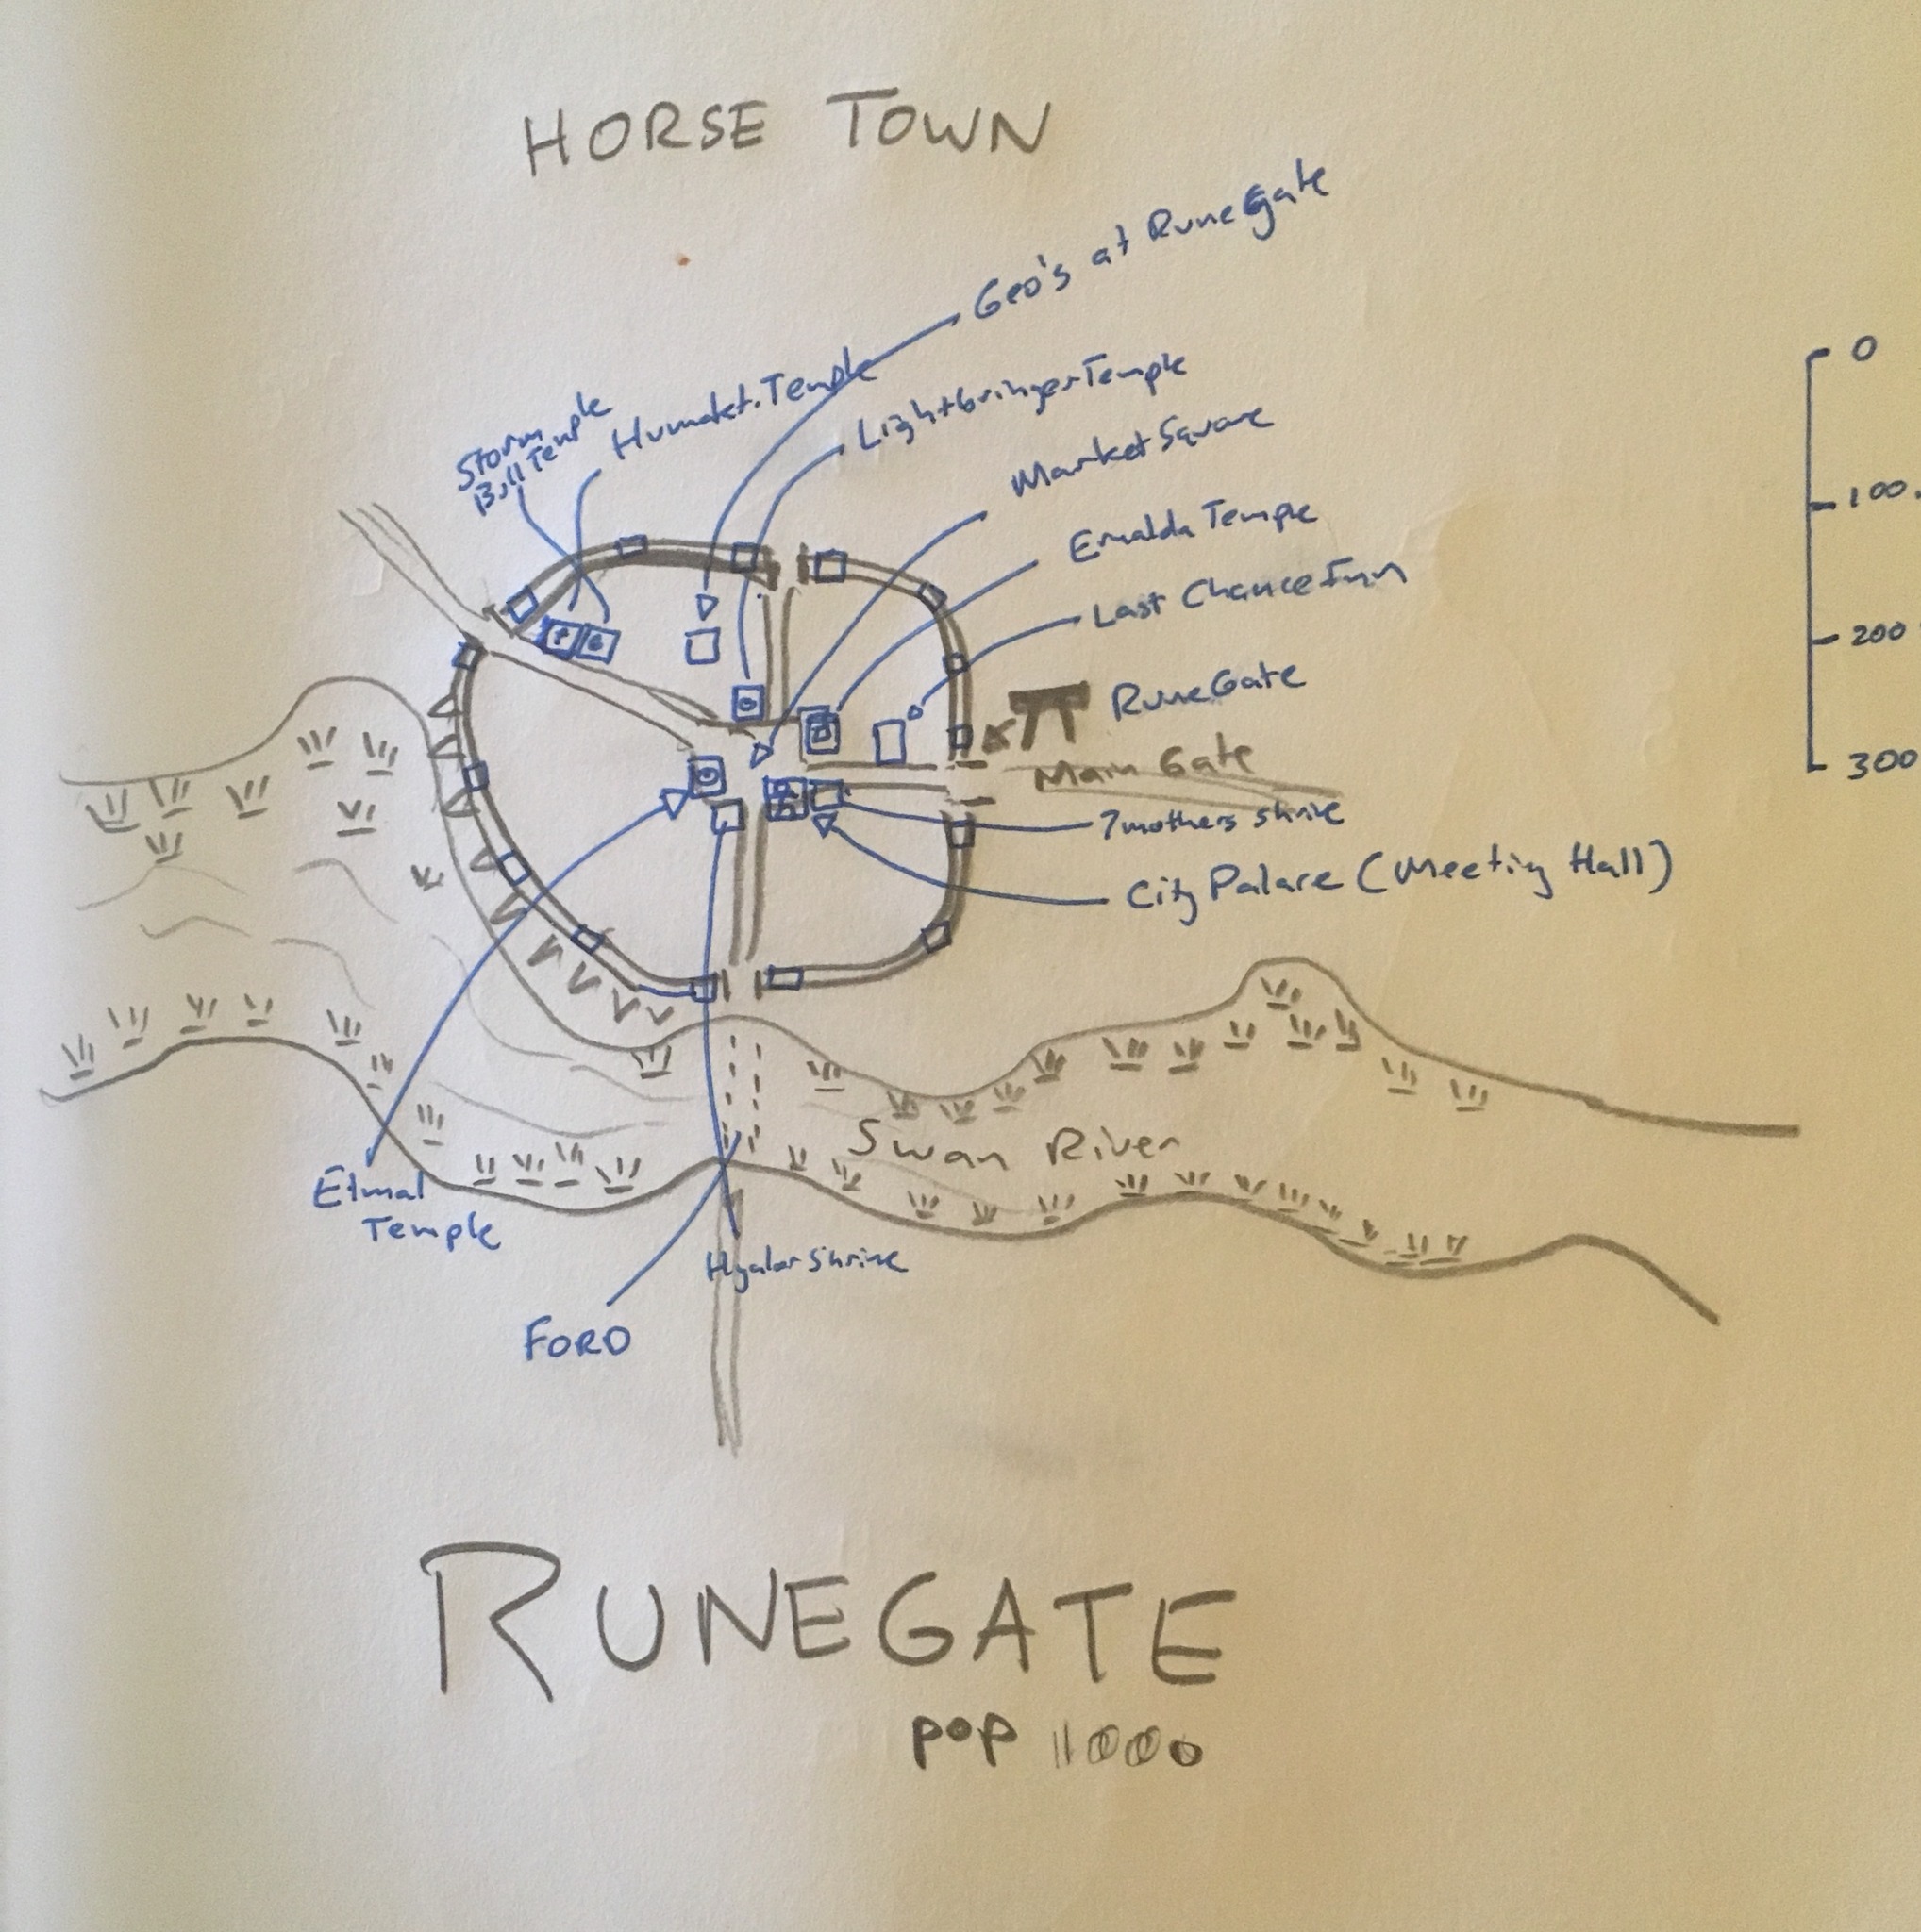 HORSE TOWN
Geo's at RuneGate
Storm
Bull Temple
Humakt. Temple
Lightbringer Temple
Market Square
Ernalda Temple
Last Chance Inn
RuneGate
Main Gate
7 mothers shrine
City Palace (Meeting Hall)
0
100
200
300
Swan River
Elmal
Temple
Hyalor Shrine
FORD
RUNEGATE
POP 11000